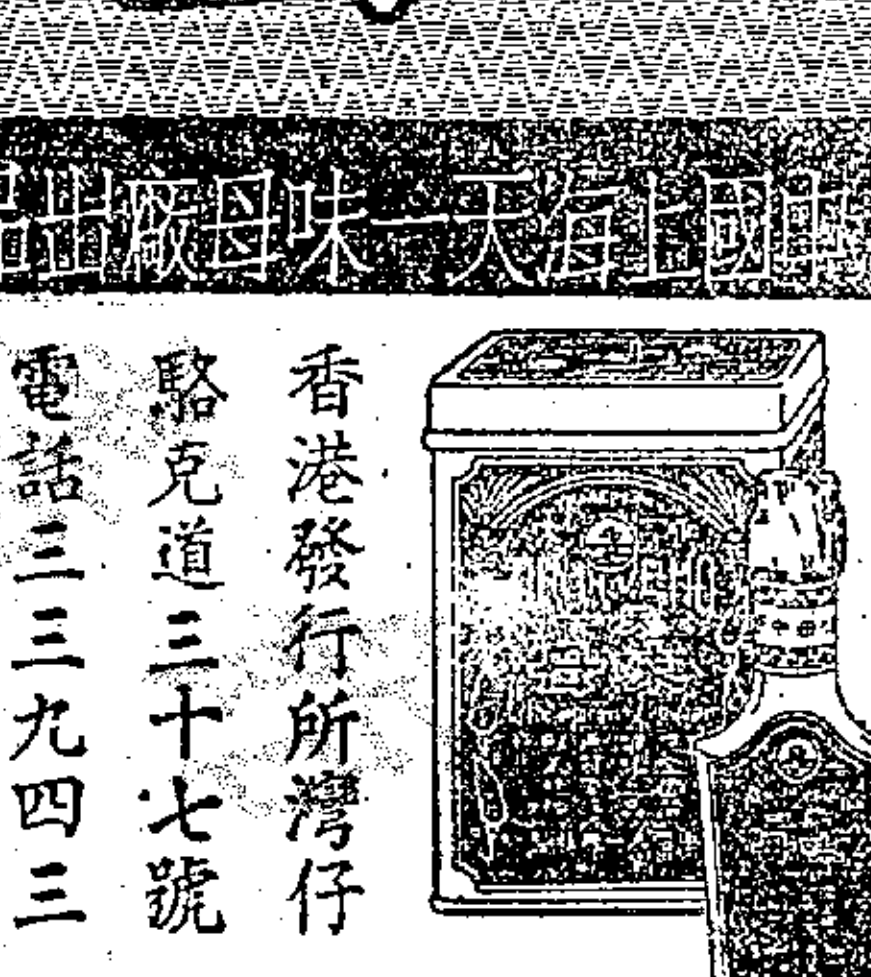 中國上海天一味母廠出品
香港發行所灣仔
駱克道三十七號
電話三三九四三